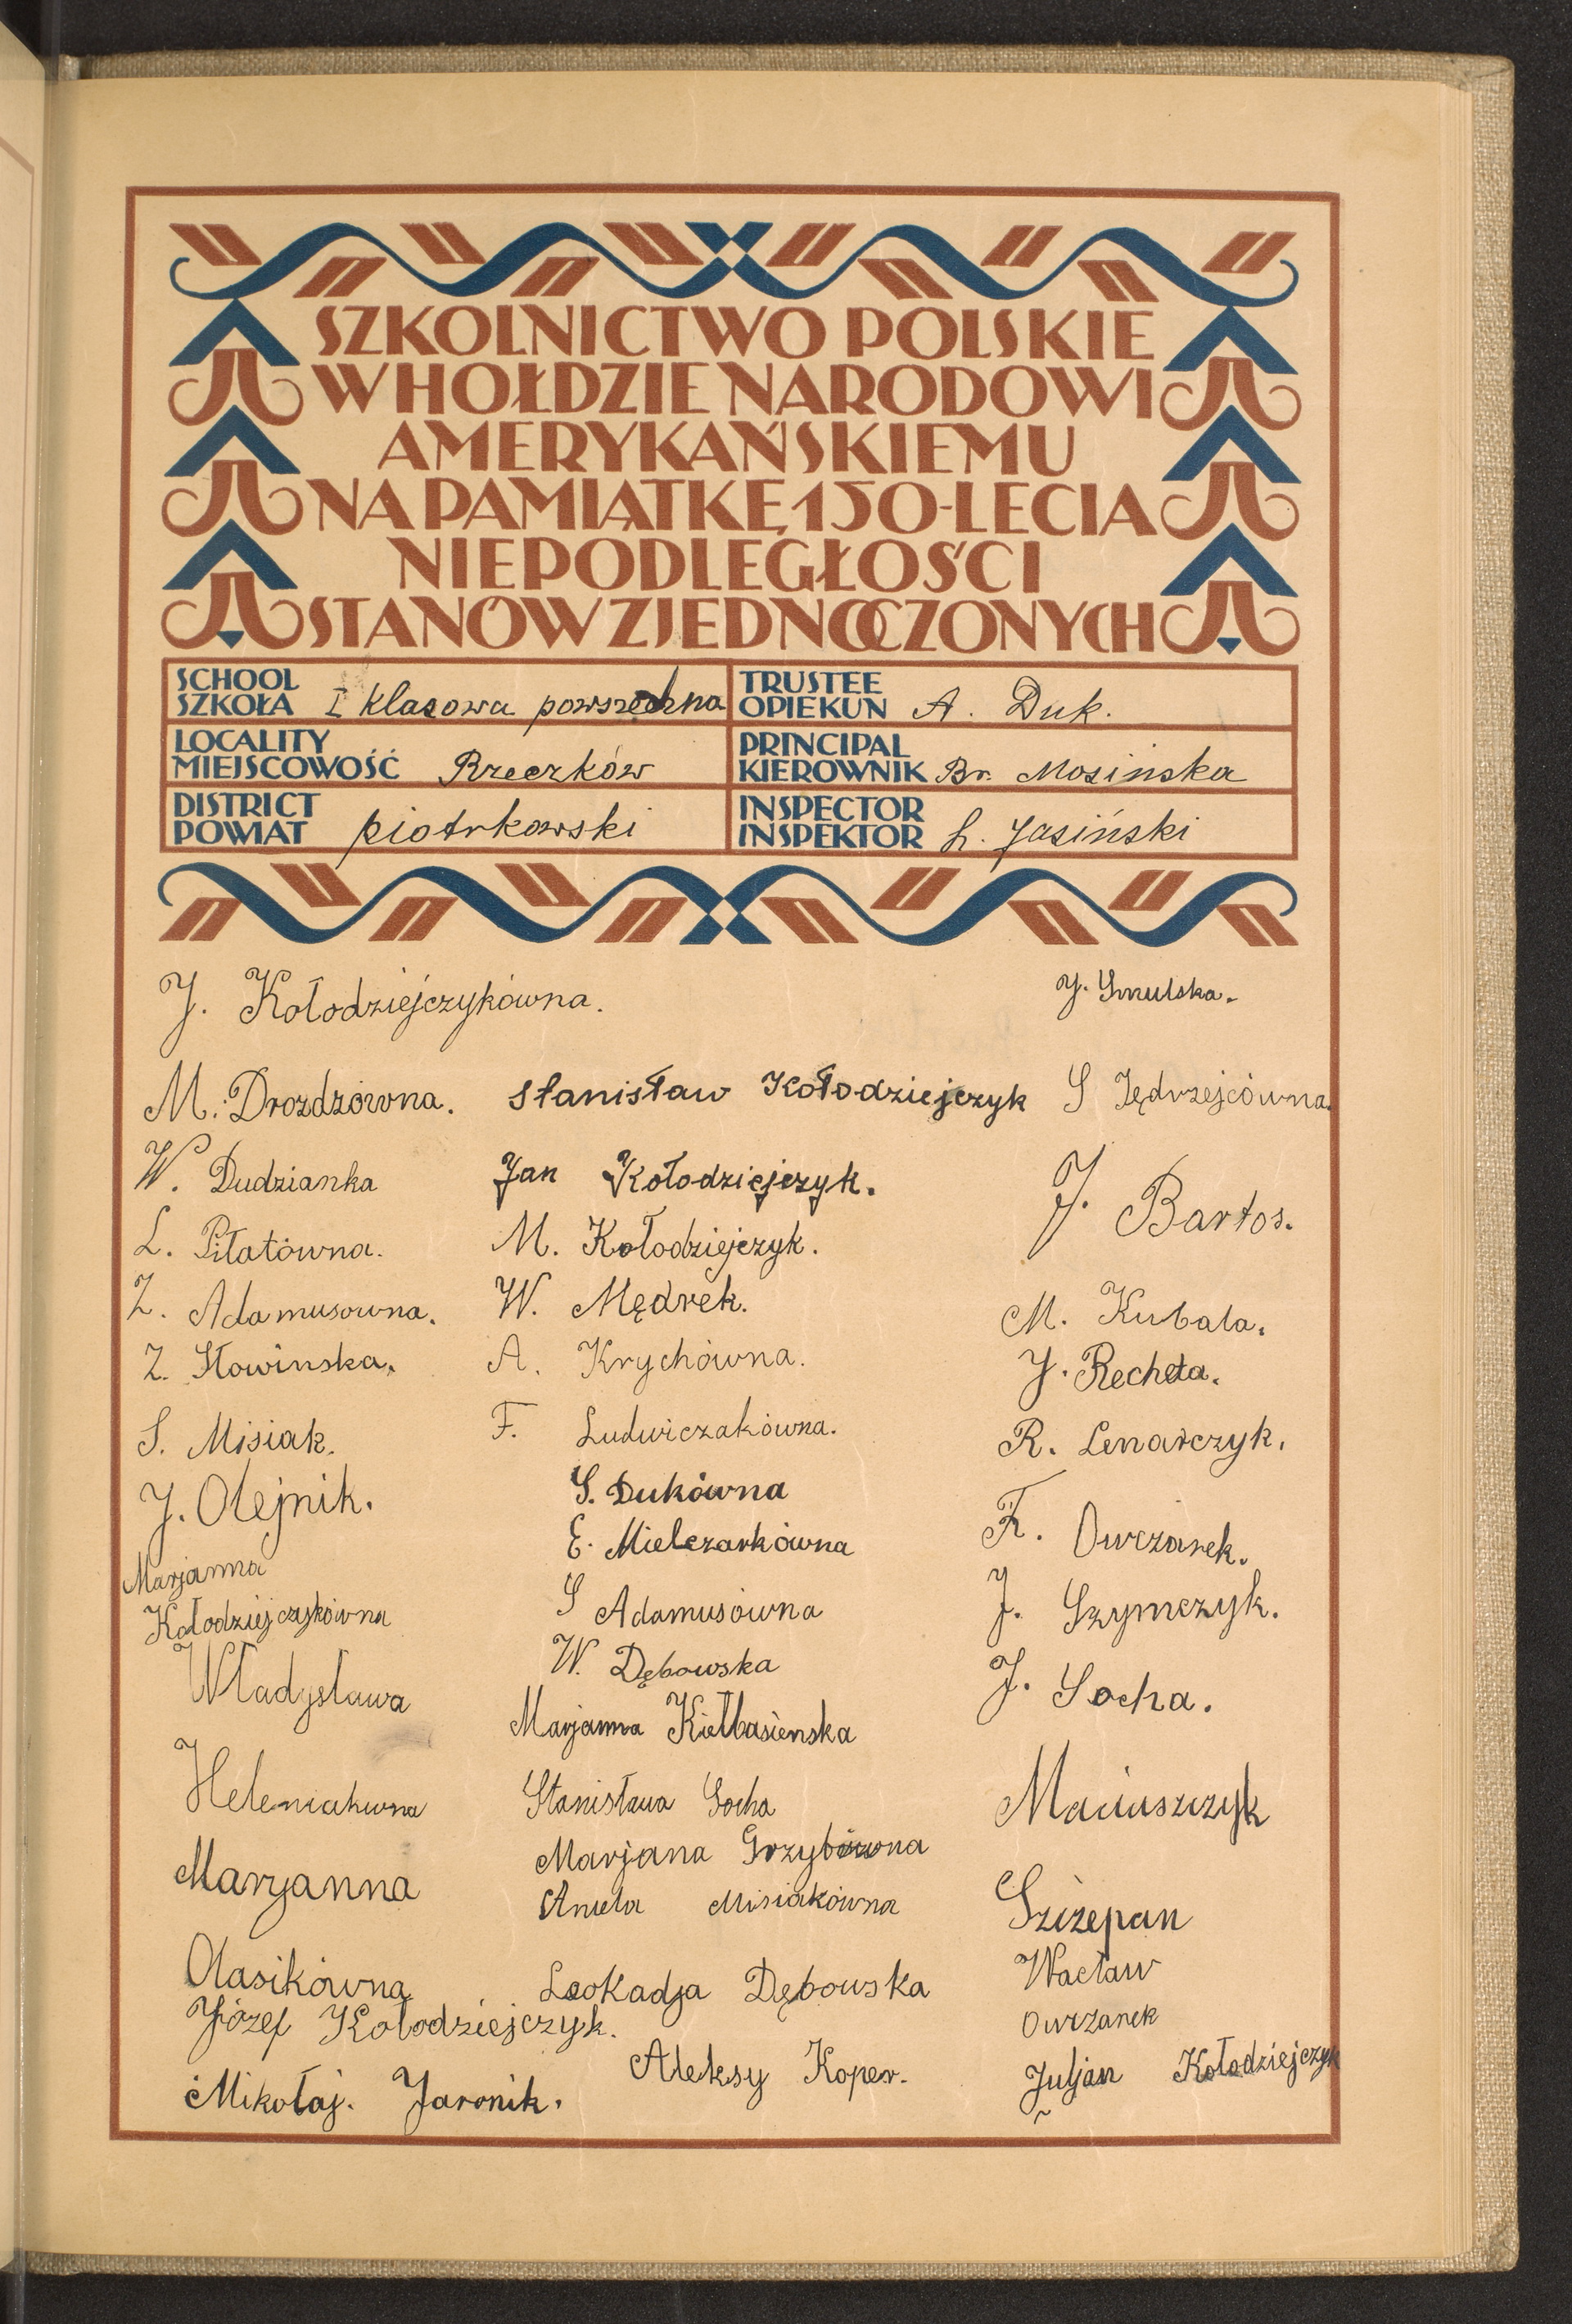 SZKOLNICTWO POLSKIE
W HOŁDZIE NARODOWI
AMERYKAŃSKIEMU
NA PAMIĄTKĘ 150-LECIA
NIEPODLEGŁOŚCI
STANÓW ZJEDNOCZONYCH
SCHOOL
SZKOŁA I klasowa powszechna
TRUSTEE
OPIEKUN A. Duk.
LOCALITY
MIEJSCOWOŚĆ Rzeczków
PRINCIPAL
KIEROWNIK Br. Mosinska
DISTRICT
POWIAT piotrkowski
INSPECTOR
INSPEKTOR L. Jasiński
J. Kołodziejczykówna.
M. Drozdzówna.
W. Dudzianka
L. Piłatówna.
Z. Adamusowna.
Z. Słowinska.
S. Misiak.
J. Olejnik.
Marjanna
Kołodziejczykówna
Władysława
Heleniakuwna
Maryanna
Olasikówna
Józef Kołodziejczyk.
Mikołaj. Jaronik.
Stanisław Kołodziejczyk
Jan Kołodziejczyk.
M. Kołodziejczyk.
W. Mędrek.
A. Krychówna.
F. Ludwiczakówna.
S. Dukówna
E. Mielczarkówna
S Adamusówna
W. Dębowska
Marjanna Kiełbasienska
Stanisława Socha
Marjana Grzybówna
Aniela Misiakówna
Leokadja Dębowska
Aleksy Koper.
J. Smulska.
S Jędrzejcówna.
J. Bartos.
M. Kubala.
J. Recheta.
R. Lenarczyk.
F. Owczarek.
J. Szymczyk.
J. Socha.
Maciuszczyk
Szczepan
Wacław
Owczarek
Juljan Kołodziejczyk